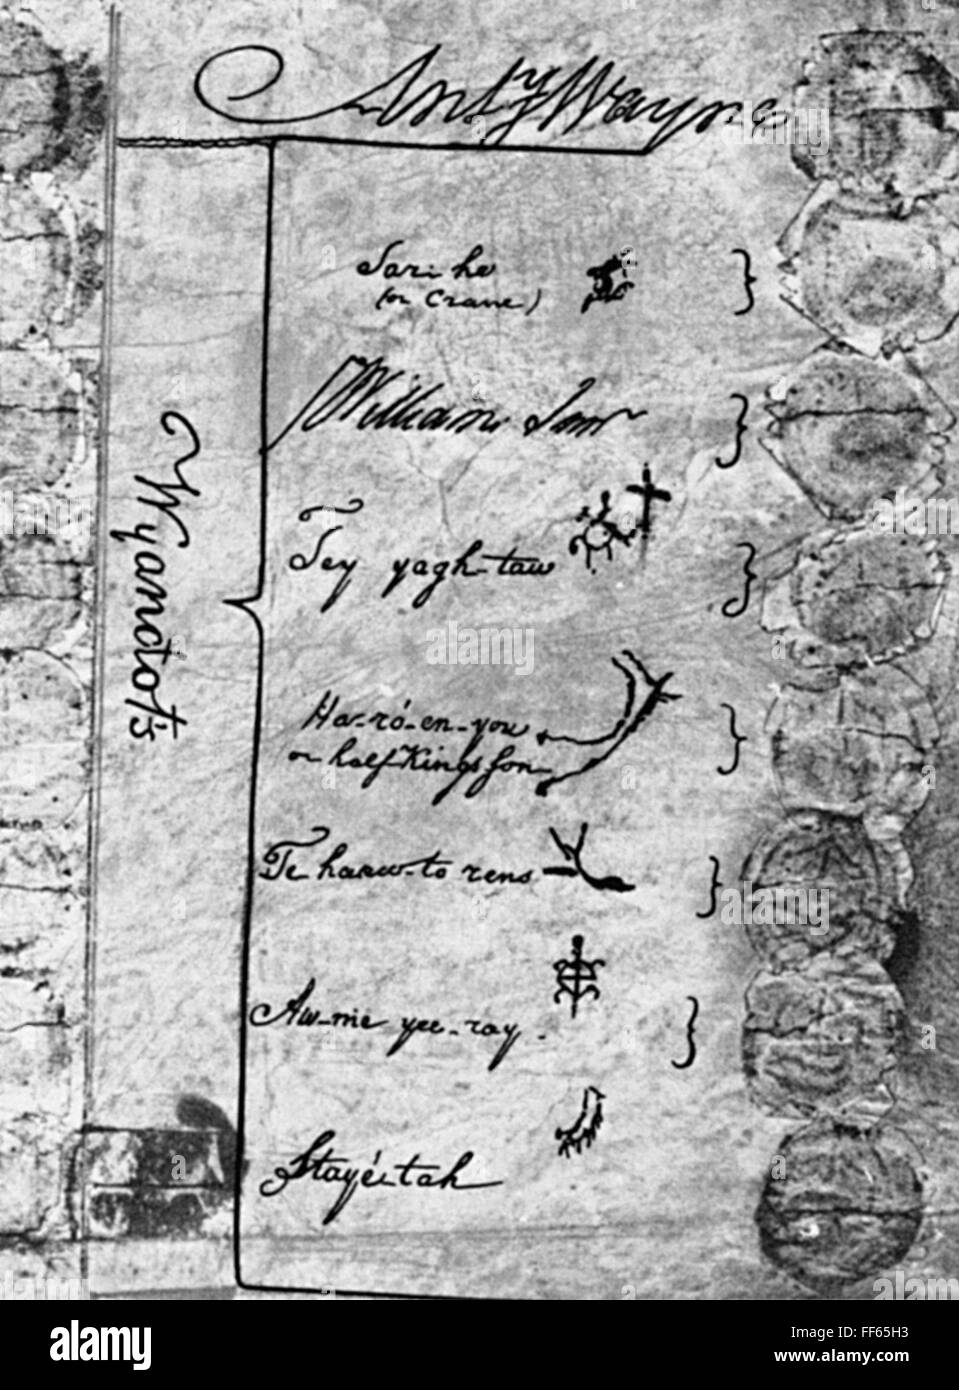 Anty Wayne
Wyandots
Tar-he
(or Crane)
William Sur
Tey yagh-taw
Ha-ró-en-you
or half Kings son
Te haaw-to rens
Aw-me yee-ray
Stayé-tah
alamy
Image ID: FF65H3
www.alamy.com